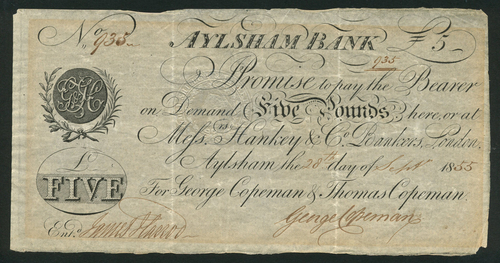 No. 935 AYLSHAM BANK £5
935
I Promise to pay the Bearer
on Demand Five Pounds, here, or at
Messrs. Hankey & Co. Bankers, London,
Aylsham the 28th day of Sept 1855
£
FIVE
For George Copeman & Thomas Copeman.
Entd. George Copeman